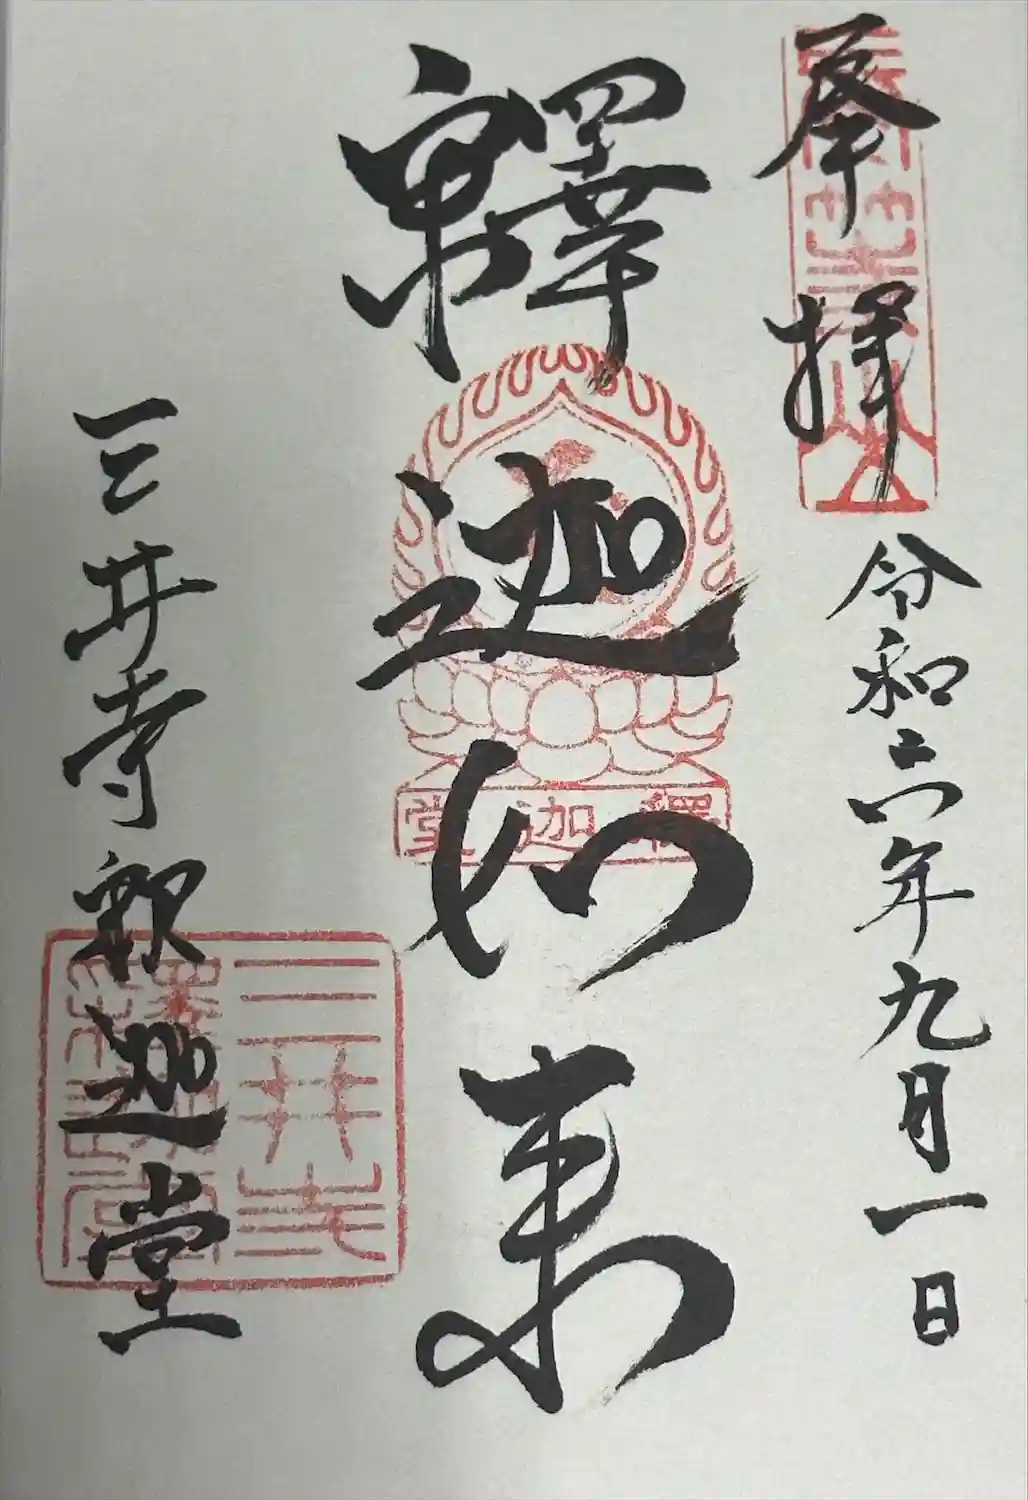 奉拝
令和六年九月一日
釋迦如来
釋迦堂
三井寺釈迦堂
三井寺
釋迦堂